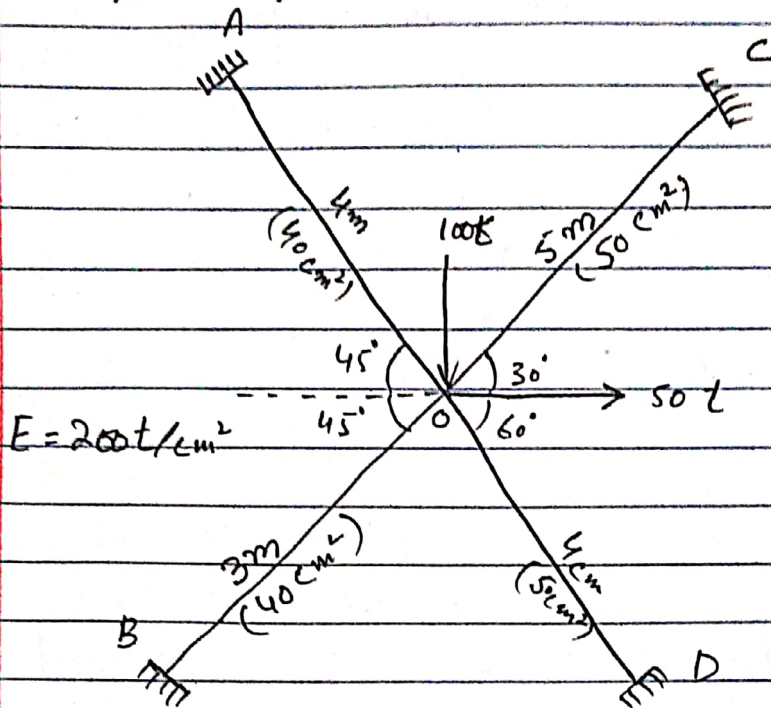 A
C
4m
(40cm²)
100t
5m
(50cm²)
45°
30°
45°
O
60°
50t
E = 2000t/cm²
3m
(40cm²)
4cm
(50cm²)
B
D